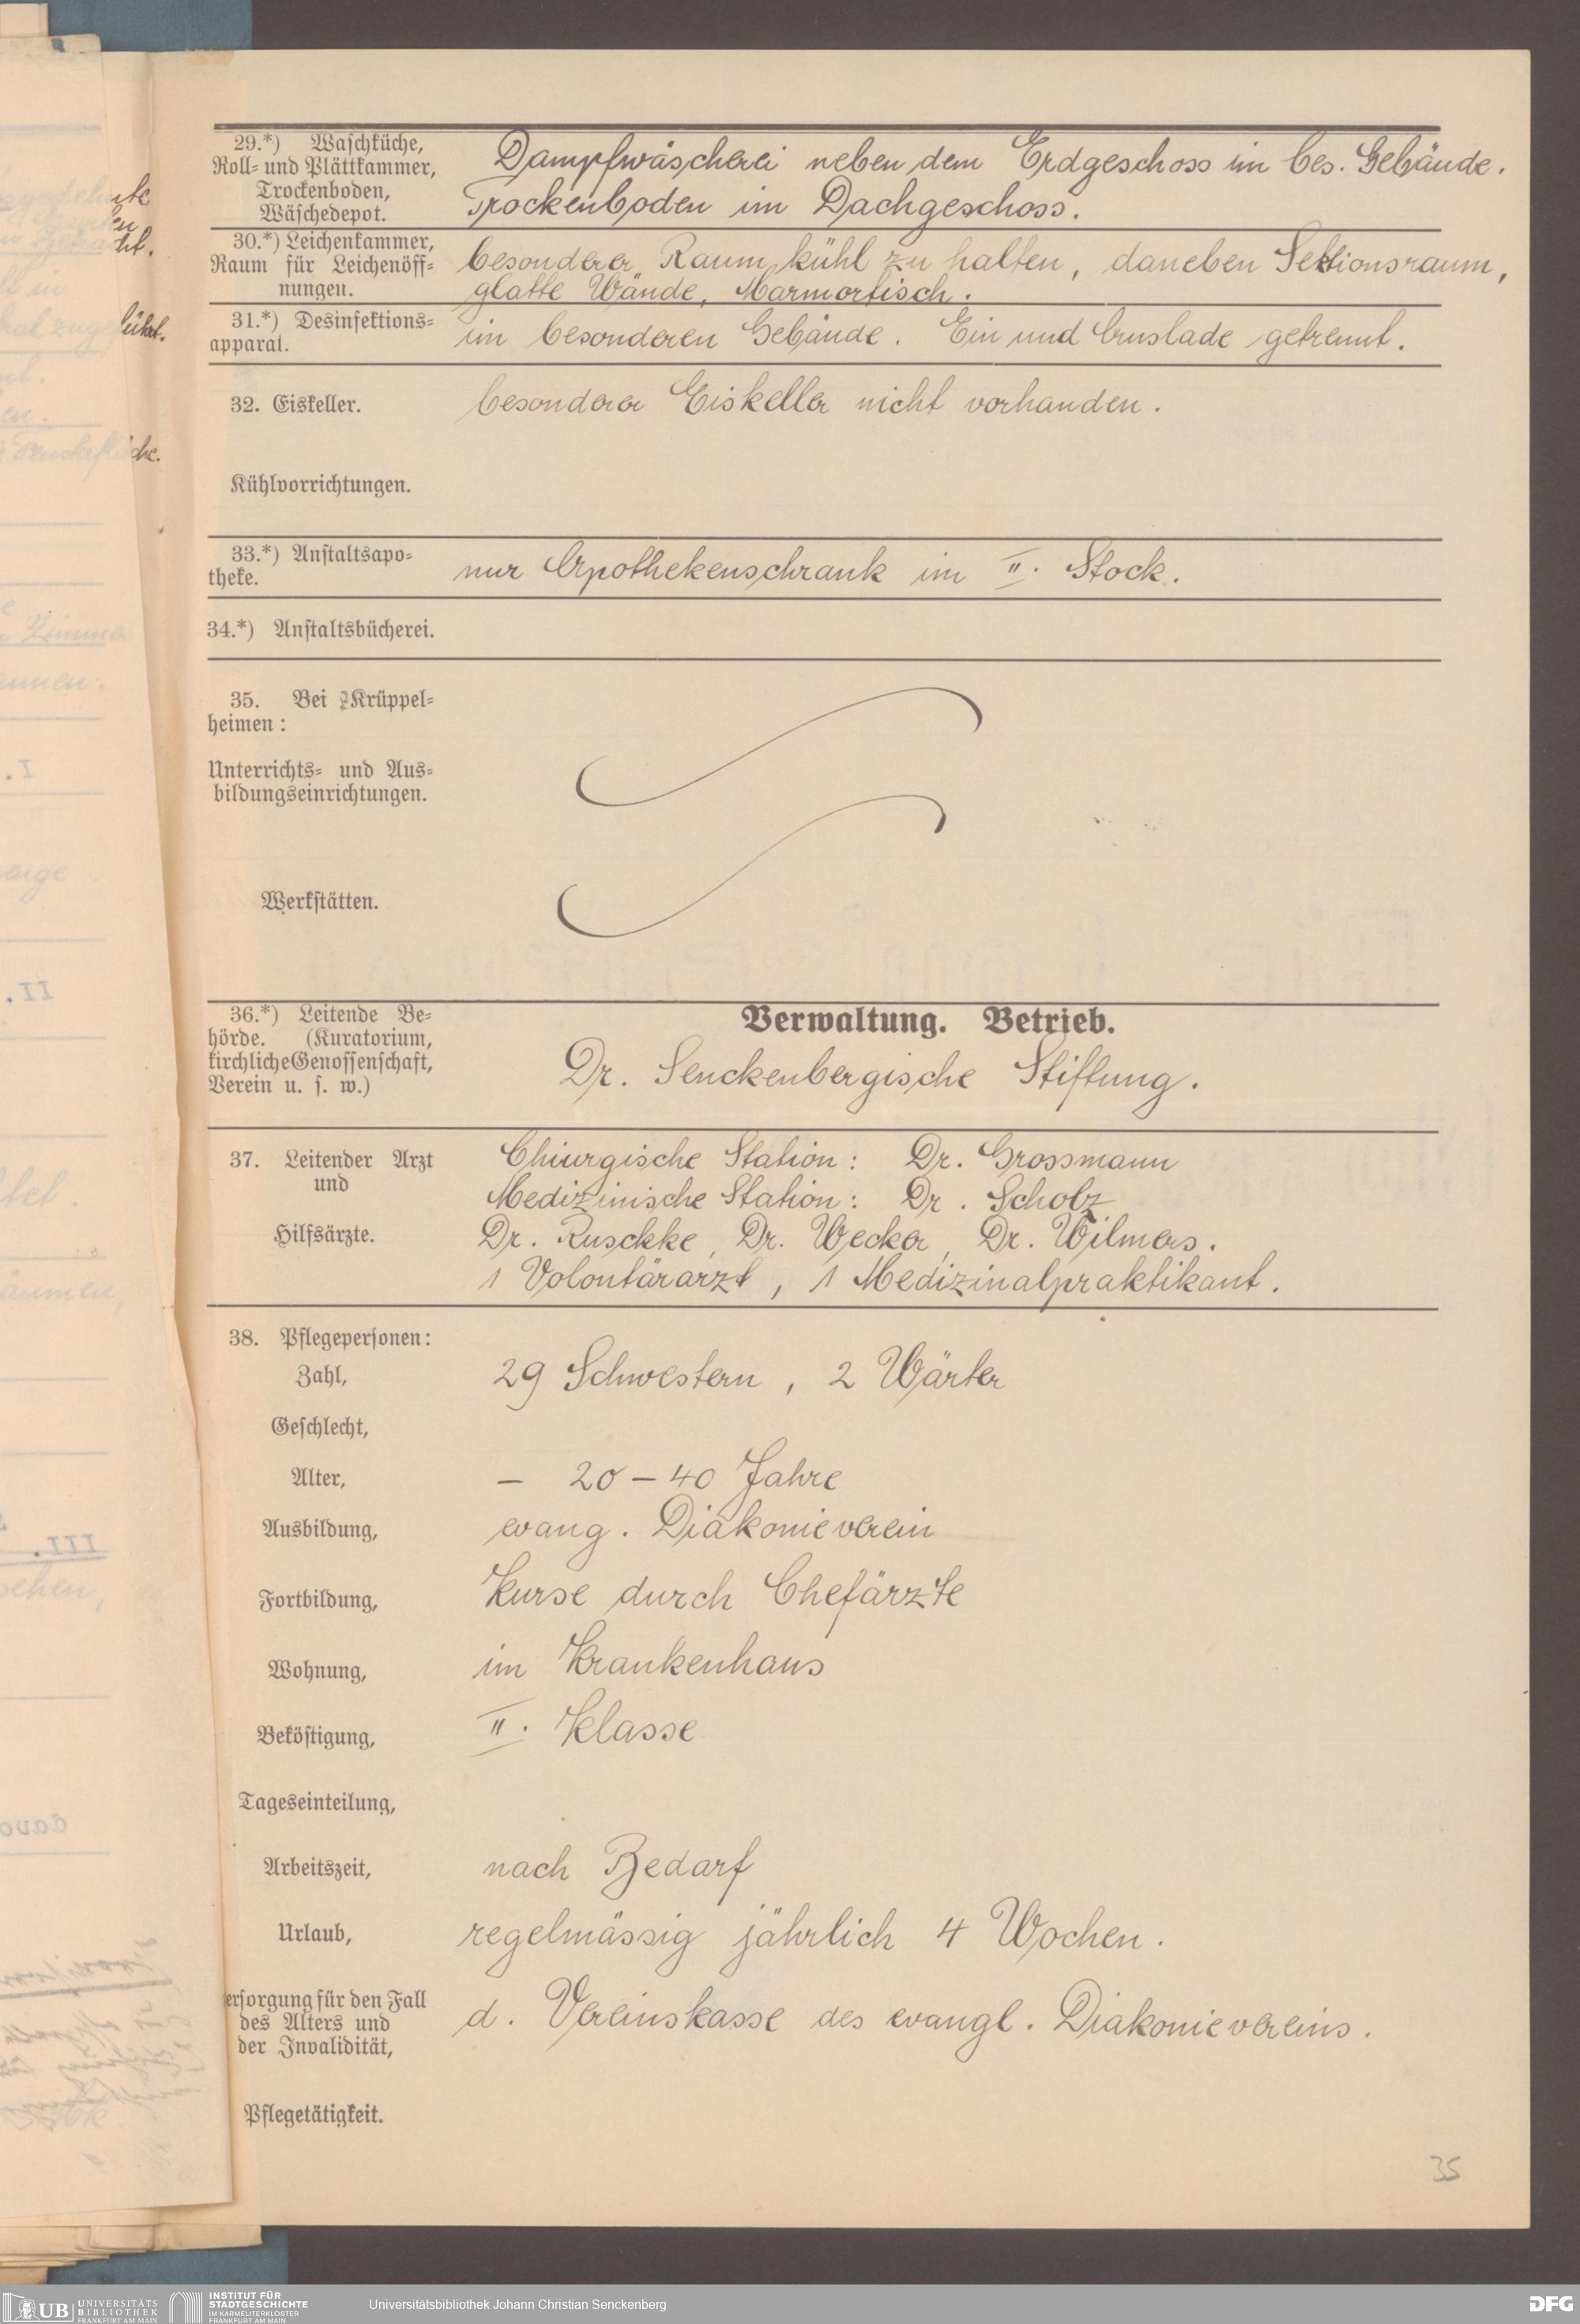 29.*) Waschküche,
Roll- und Plättkammer,
Trockenboden,
Wäschedepot.
Dampfwäscherei neben dem Erdgeschoss im bes. Gebäude.
Trockenboden im Dachgeschoss.
30.*) Leichenkammer,
Raum für Leichenöff-
nungen.
besonderer Raum kühl zu halten, daneben Sektionsraum,
glatte Wände, Marmortisch.
31.*) Desinfektions-
apparat.
im besonderen Gebäude. Ein und Auslade getrennt.
32. Eiskeller.
besonderer Eiskeller nicht vorhanden.
Kühlvorrichtungen.
33.*) Anstaltsapo-
theke.
nur Apothekenschrank im II. Stock.
34.*) Anstaltsbücherei.
35. Bei Krüppel-
heimen:
Unterrichts- und Aus-
bildungseinrichtungen.
Werkstätten.
Verwaltung. Betrieb.
36.*) Leitende Be-
hörde. (Kuratorium,
kirchliche Genossenschaft,
Verein u. s. w.)
Dr. Senckenbergische Stiftung.
37. Leitender Arzt
und
Hilfsärzte.
Chirurgische Station: Dr. Grossmann
Medizinische Station: Dr. Scholz
Dr. Ruschke, Dr. Wecker, Dr. Wilmers.
1 Volontärarzt, 1 Medizinalpraktikant.
38. Pflegepersonen:
Zahl,
29 Schwestern, 2 Wärter
Geschlecht,
Alter,
– 20–40 Jahre
Ausbildung,
evang. Diakonieverein
Fortbildung,
Kurse durch Chefärzte
Wohnung,
im Krankenhaus
Beköstigung,
II. Klasse
Tageseinteilung,
Arbeitszeit,
nach Bedarf
Urlaub,
regelmässig jährlich 4 Wochen.
ersorgung für den Fall
des Alters und
der Invalidität,
d. Vereinskasse des evangl. Diakonievereins.
Pflegetätigkeit.
35
UB UNIVERSITÄTS
BIBLIOTHEK
FRANKFURT AM MAIN
INSTITUT FÜR
STADTGESCHICHTE
IM KARMELITERKLOSTER
FRANKFURT AM MAIN
Universitätsbibliothek Johann Christian Senckenberg
DFG